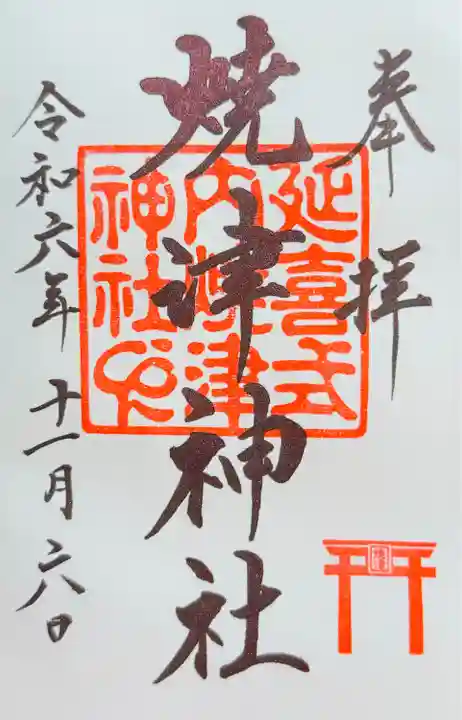 奉拝
焼津神社
延喜式
内焼津
神社印
令和六年十一月六日